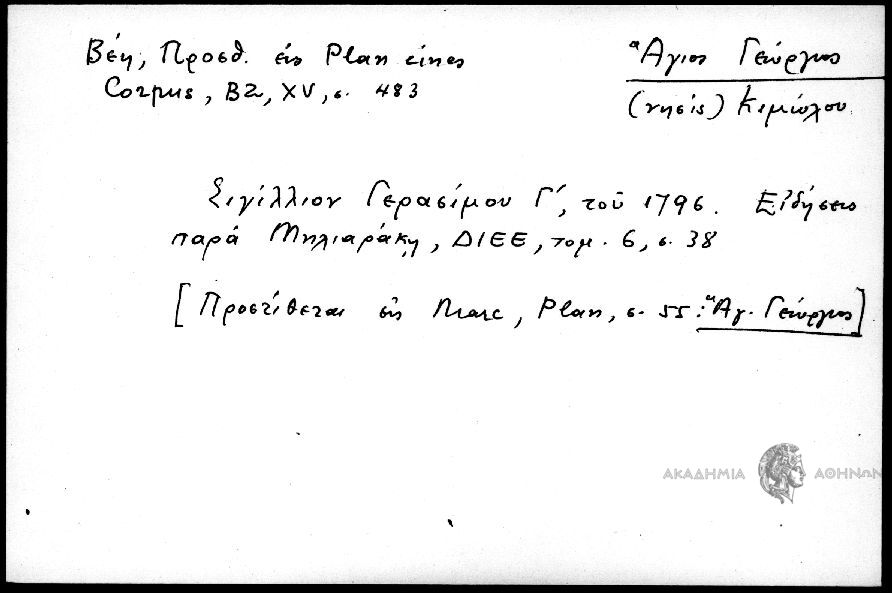 Βέη, Προσθ. εἰς Plan eines
Corpus, BZ, XV, σ. 483
Ἅγιος Γεώργιος
(νησίς) Κιμώλου
Σιγίλλιον Γερασίμου Γ΄, τοῦ 1796. Εἰδήσεις
παρά Μηλιαράκῃ, ΔΙΕΕ, τομ. 6, σ. 38
[Προστίθεται εἰς Marc, Plan, σ. 55: Ἅγ. Γεώργιος]
ΑΚΑΔΗΜΙΑ ΑΘΗΝΩΝ